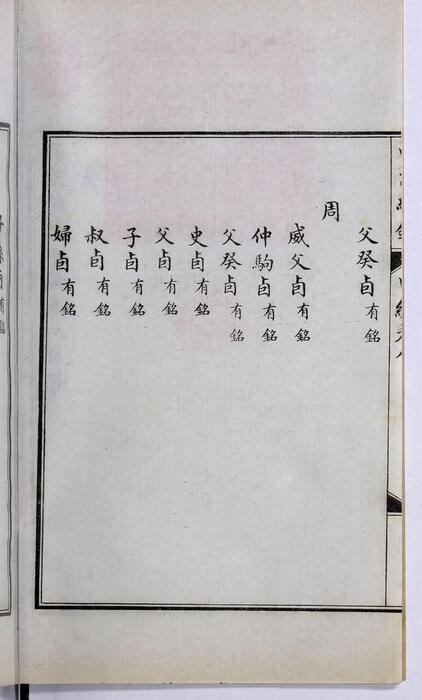 父癸卣有銘
周
威父卣有銘
仲駒卣有銘
父癸卣有銘
史卣有銘
父卣有銘
子卣有銘
叔卣有銘
婦卣有銘